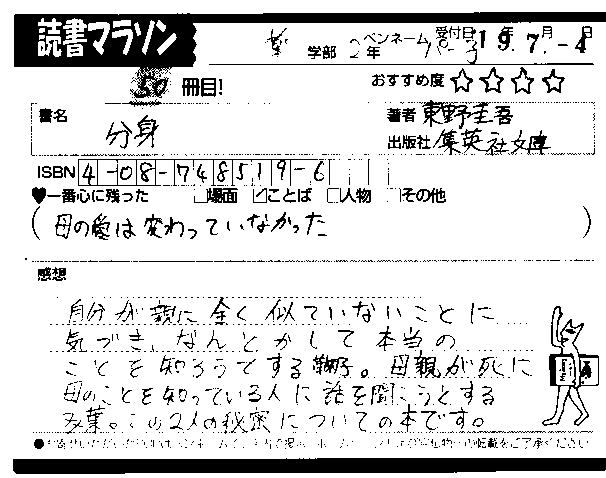 読書マラソン
薬 学部 2年 ペンネーム パー子 受付日 19年 7月 -4日
50 冊目!
おすすめ度 ☆☆☆☆
書名 分身
著者 東野圭吾
出版社 集英社文庫
ISBN 4-08-748519-6
♥一番心に残った □場面 ☑ことば □人物 □その他
(母の愛は変わっていなかった)
感想
自分が親に全く似ていないことに
気づき、なんとかして本当の
ことを知ろうてする鞠子。母親が死に
母のことを知っている人に話を聞こうとする
双葉。この2人の秘密についての本です。